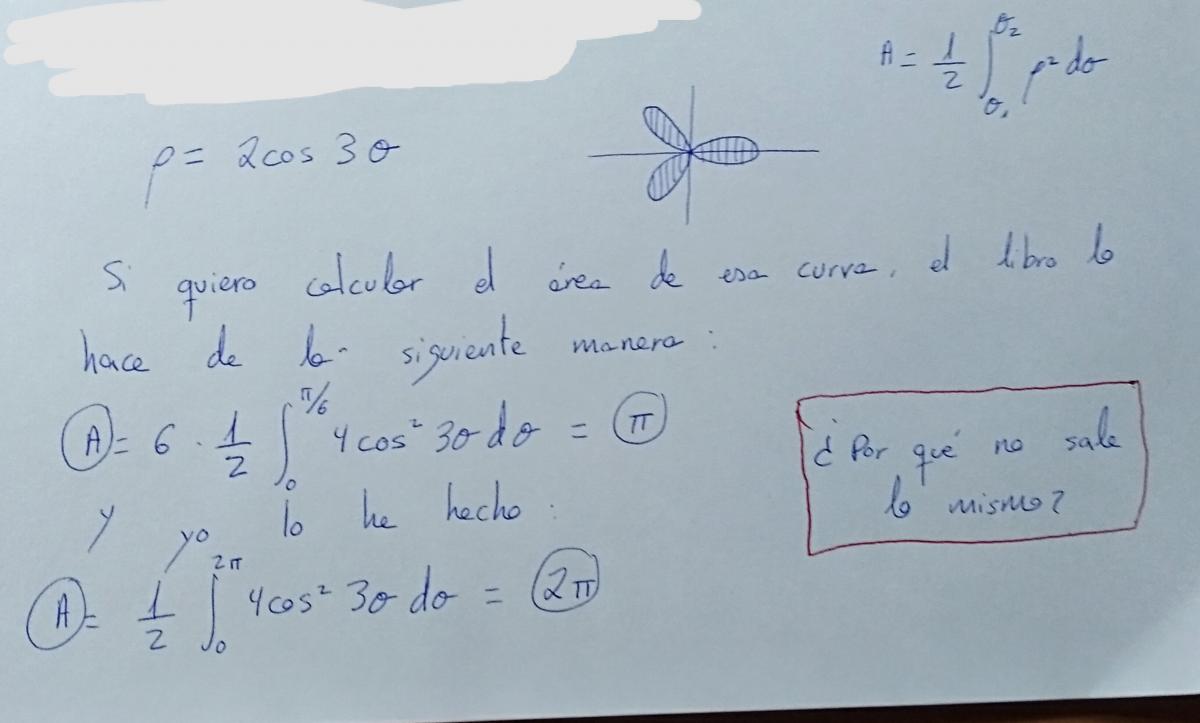 A = 1/2 ∫_{θ₁}^{θ₂} ρ² dθ
ρ = 2cos 3θ
Si quiero calcular el área de esa curva, el libro lo
hace de la siguiente manera:
A = 6 · 1/2 ∫_0^{π/6} 4cos² 3θ dθ = π
y yo lo he hecho:
A = 1/2 ∫_0^{2π} 4cos² 3θ dθ = 2π
¿Por qué no sale
lo mismo?